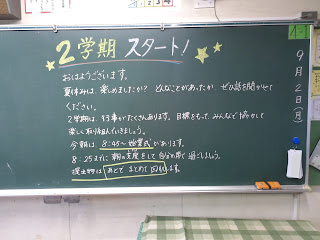 2学期 スタート!
おはようございます。
夏休みは、楽しめましたか? どんなことがあったか、ゼひ話を聞かせて
ください。
2学期は、行事がたくさんあります。目標をもって、みんなで協力して
楽しく取り組んでいきましょう。
今朝は、8:45〜 始業式があります。
8:25までに 朝の支度をして 自分の席で過ごしましょう。
提出物は あとで まとめて 回収します。
1-1
9月2日(月)